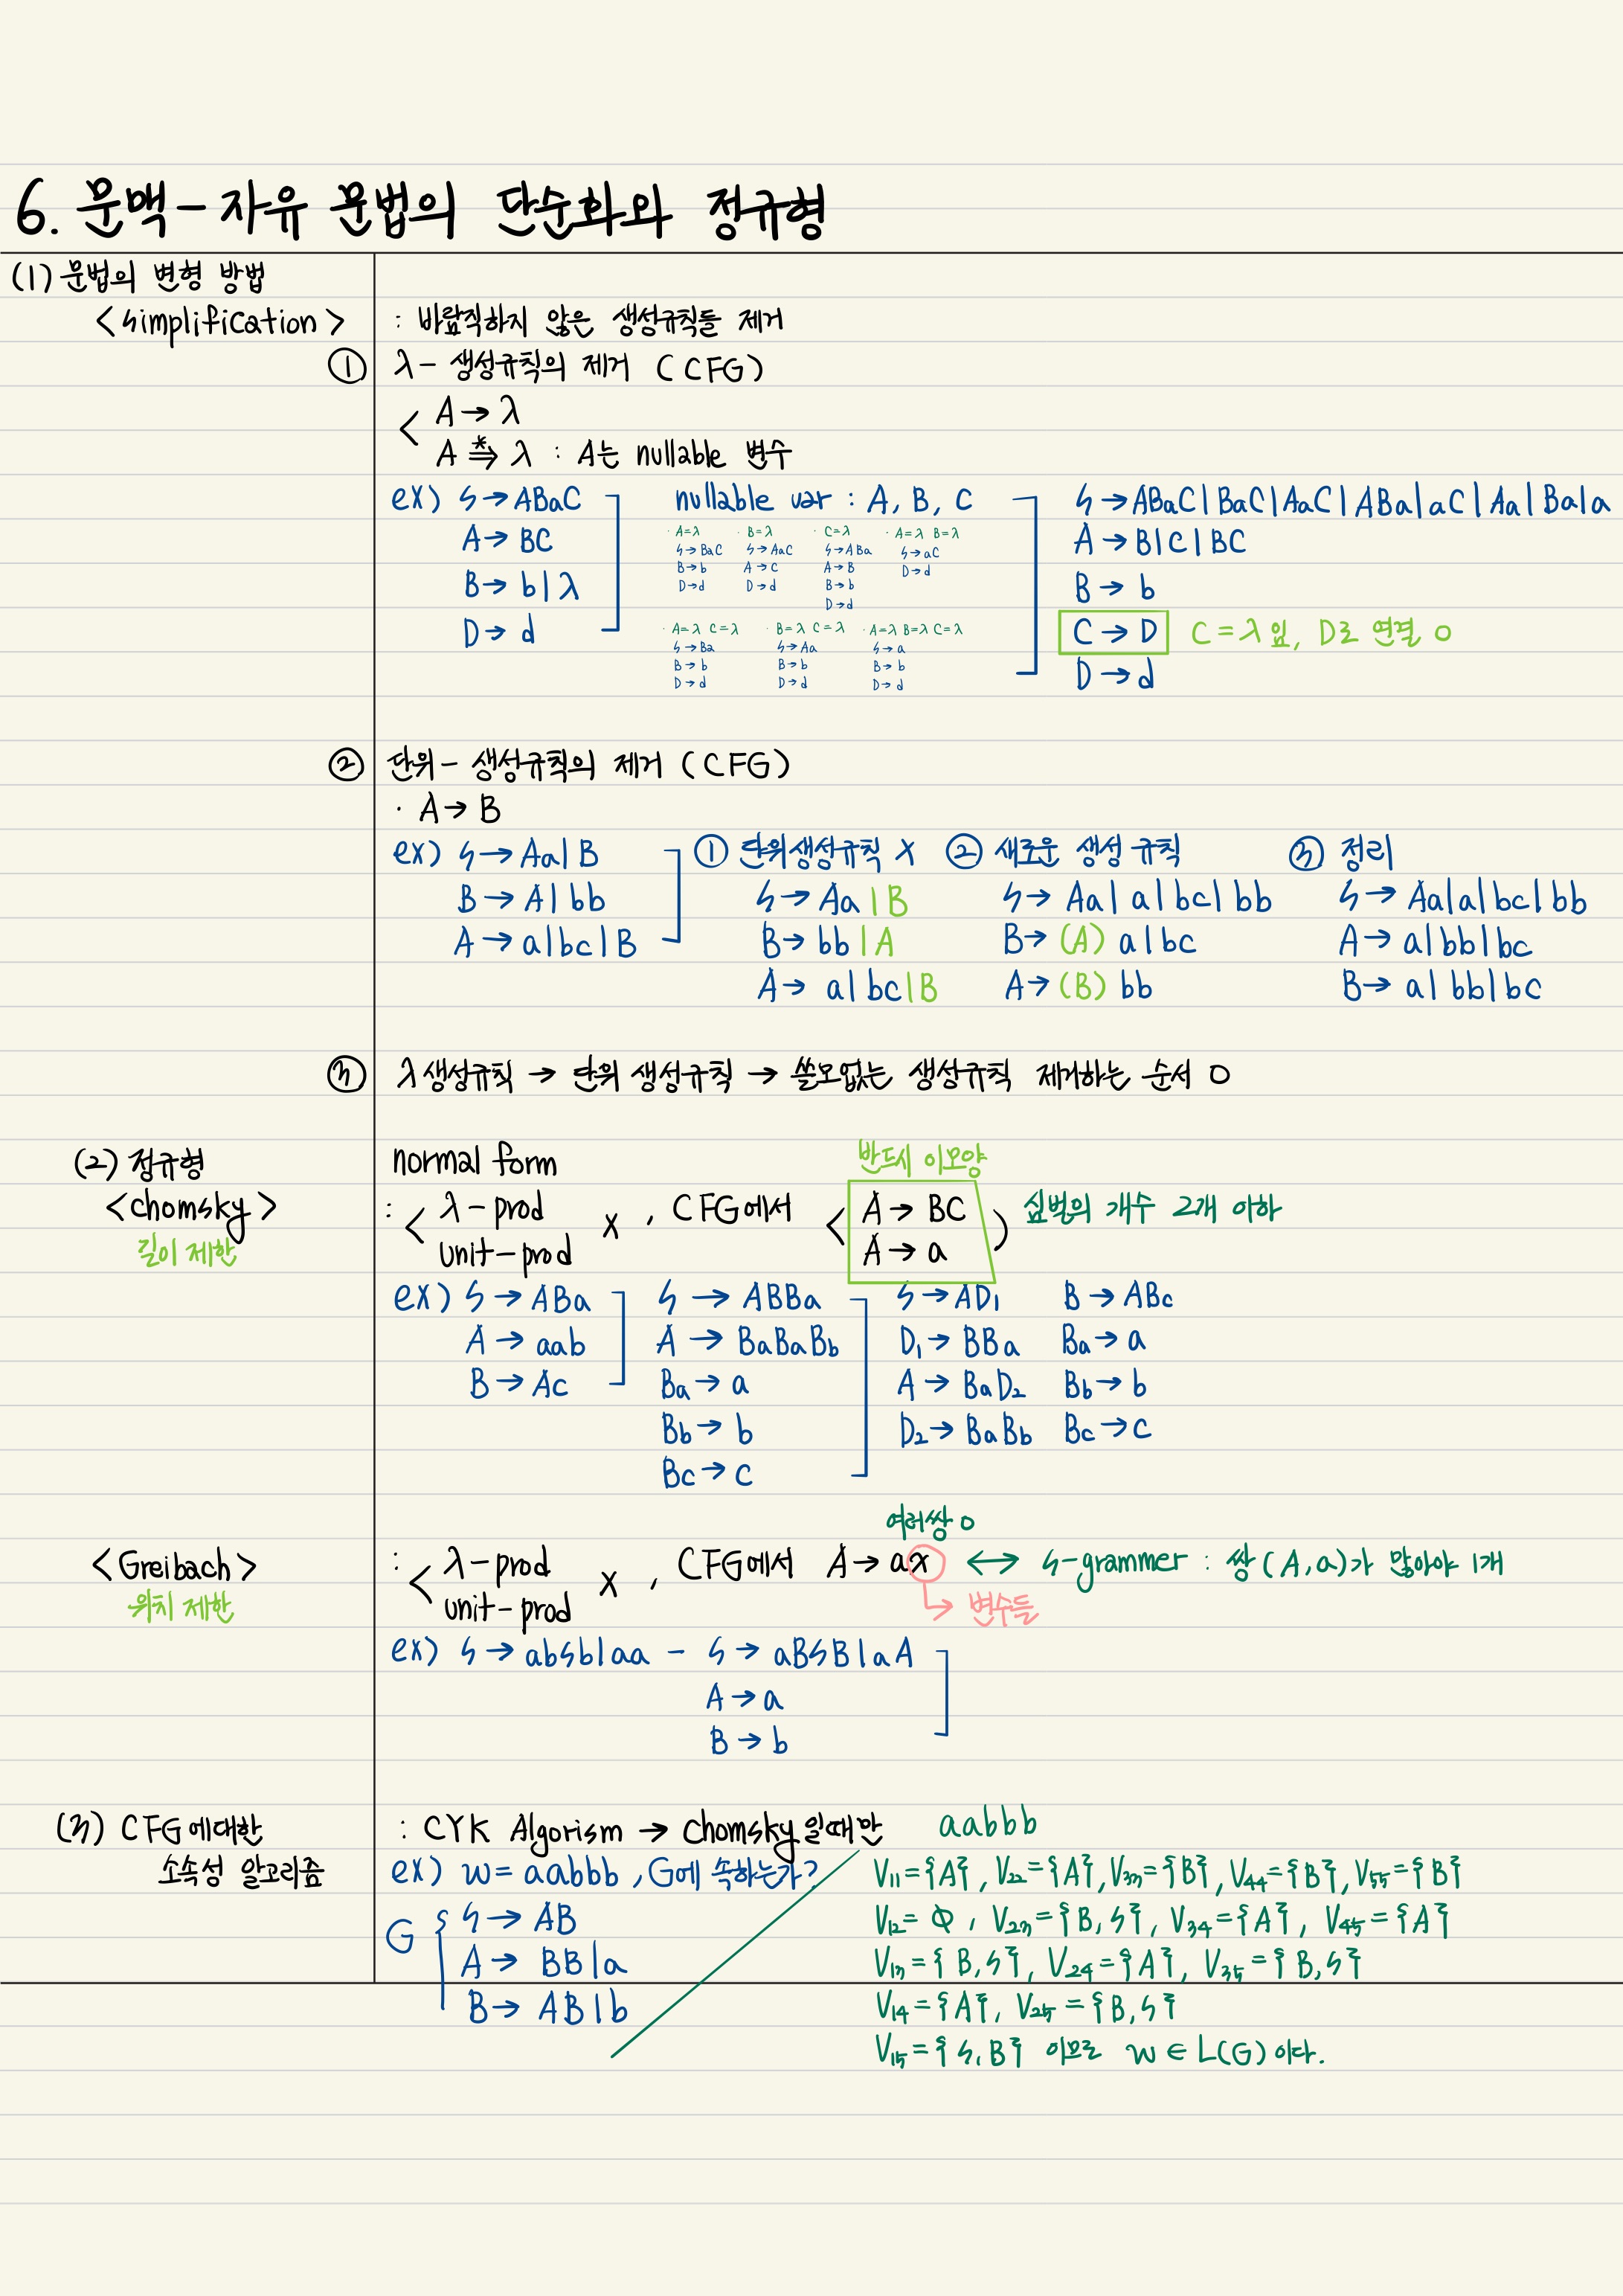 6. 문맥-자유 문법의 단순화와 정규형
(1) 문법의 변형 방법
<simplification> : 바람직하지 않은 생성규칙들 제거
① λ- 생성규칙의 제거 (CFG)
< A → λ
A ⇒* λ : A는 nullable 변수
ex) S → ABaC
A → BC
B → b|λ
D → d
nullable var : A, B, C
· A=λ
S→BaC
B→b
D→d
· B=λ
S→AaC
A→C
D→d
· C=λ
S→ABa
A→B
B→b
D→d
· A=λ B=λ
S→aC
D→d
· A=λ C=λ
S→Ba
B→b
D→d
· B=λ C=λ
S→Aa
B→b
D→d
· A=λ B=λ C=λ
S→a
B→b
D→d
S→ABaC|BaC|AaC|ABa|aC|Aa|Ba|a
A→B|C|BC
B→b
C→D C=λ 임, D로 연결 O
D→d
② 단위- 생성규칙의 제거 (CFG)
· A→B
ex) S→Aa|B
B→A|bb
A→a|bc|B
① 단위생성규칙 X
S→Aa|B
B→bb|A
A→a|bc|B
② 새로운 생성 규칙
S→Aa|a|bc|bb
B→(A) a|bc
A→(B) bb
③ 정리
S→Aa|a|bc|bb
A→a|bb|bc
B→a|bb|bc
③ λ생성규칙 → 단위 생성규칙 → 쓸모없는 생성규칙 제거하는 순서 O
(2) 정규형 normal form
<chomsky>
길이 제한
: < λ-prod
unit-prod X , CFG에서 < A→BC
A→a )
반드시 이모양
심벌의 개수 2개 이하
ex) S→ABa
A→aab
B→Ac
S→ABBa
A→BaBaBb
Ba→a
Bb→b
Bc→c
S→AD₁
D₁→BBa
A→BaD₂
D₂→BaBb
B→ABc
Ba→a
Bb→b
Bc→c
<Greibach>
위치 제한
: < λ-prod
unit-prod X , CFG에서 A→ax ↔ S-grammer : 쌍 (A,a)가 많아야 1개
여러쌍 O
변수들
ex) S→absb|aa - S→aBSB|aA
A→a
B→b
(3) CFG에대한
소속성 알고리즘
: CYK Algorism → chomsky일때만
ex) w=aabbb, G에 속하는가?
G { S→AB
A→BB|a
B→AB|b
aabbb
V₁₁={A}, V₂₂={A}, V₃₃={B}, V₄₄={B}, V₅₅={B}
V₁₂=Φ, V₂₃={B,S}, V₃₄={A}, V₄₅={A}
V₁₃={B,S}, V₂₄={A}, V₃₅={B,S}
V₁₄={A}, V₂₅={B,S}
V₁₅={S,B} 이므로 w∈L(G) 이다.